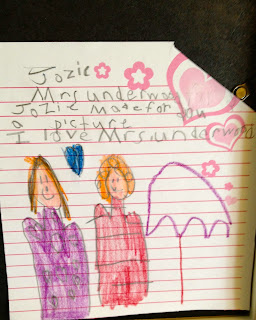 Jozie
Mrs underwood
Jozie made for you
a picture
I love Mrs. underwood